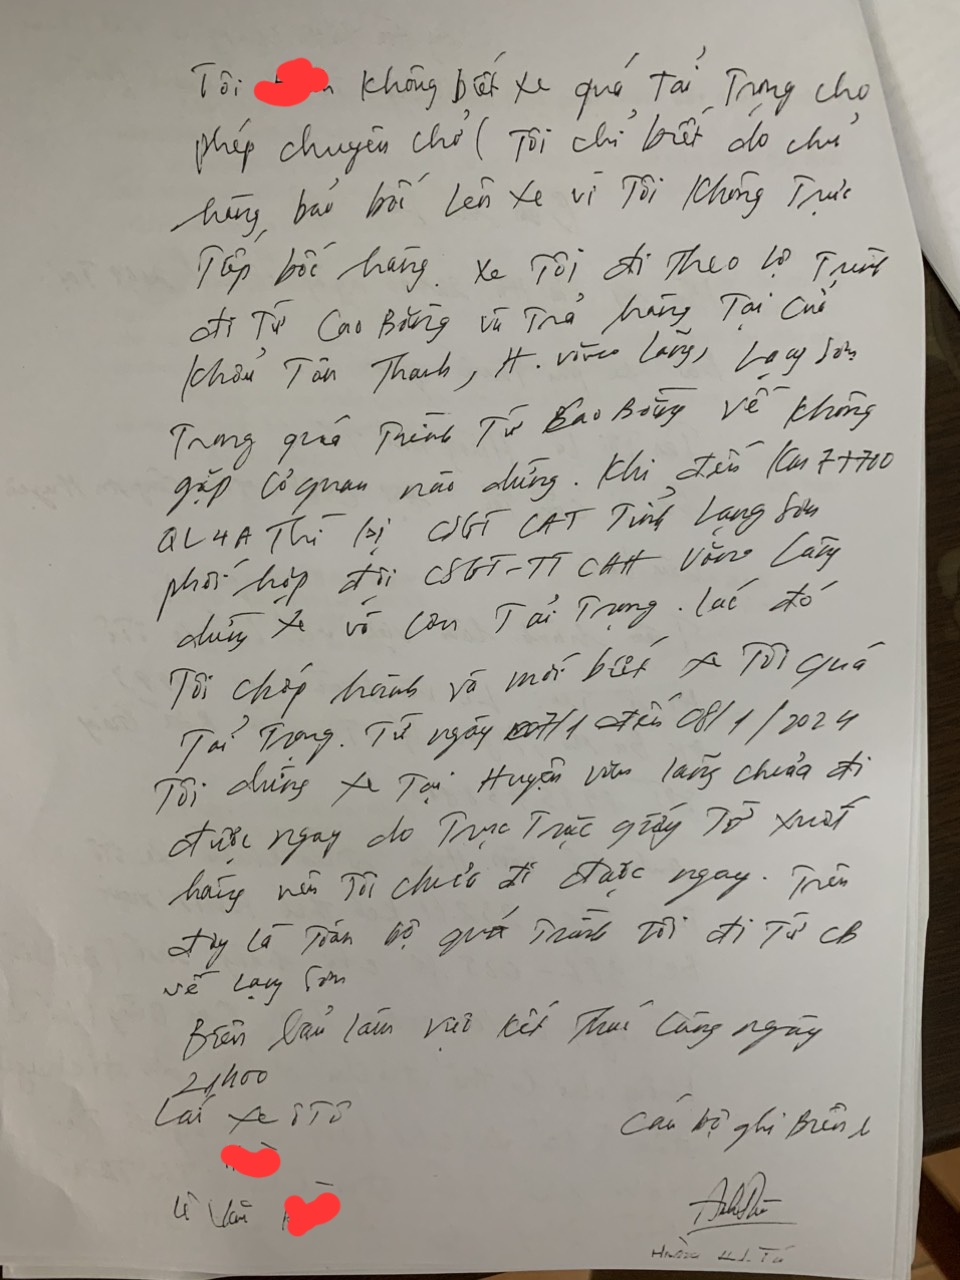 Tôi không biết xe quá tải Trọng cho
phép chuyên chở ( Tôi chỉ biết do chủ
hàng bảo bốc lên xe vì Tôi không Trực
Tiếp bốc hàng. Xe Tôi đi theo lộ Trình
đi Từ Cao Bằng và Trả hàng Tại Cửa
khẩu Tân Thanh, H. Văn Lãng, Lạng Sơn
Trong quá Trình Từ Cao Bằng về không
gặp cơ quan nào dừng. Khi đến Km 7+700
QL4A Thì bị CSGT CAT Tỉnh Lạng Sơn
phối hợp đội CSGT-TT CAH Văn Lãng
dừng xe và cân Tải Trọng. Lúc đó
Tôi chấp hành và mới biết xe Tôi quá
Tải Trọng. Từ ngày 07/1 đến 08/1/2024
Tôi dừng xe Tại Huyện Văn Lãng chưa đi
được ngay do Trục Trặc giấy Tờ xuất
hàng nên Tôi chưa đi được ngay. Trên
đây là Toàn bộ quá Trình tôi đi Từ CB
về Lạng Sơn
Biên bản làm việc kết Thúc cùng ngày
21h00
Lái xe ô Tô
Cán bộ ghi Biên b
Lê Văn